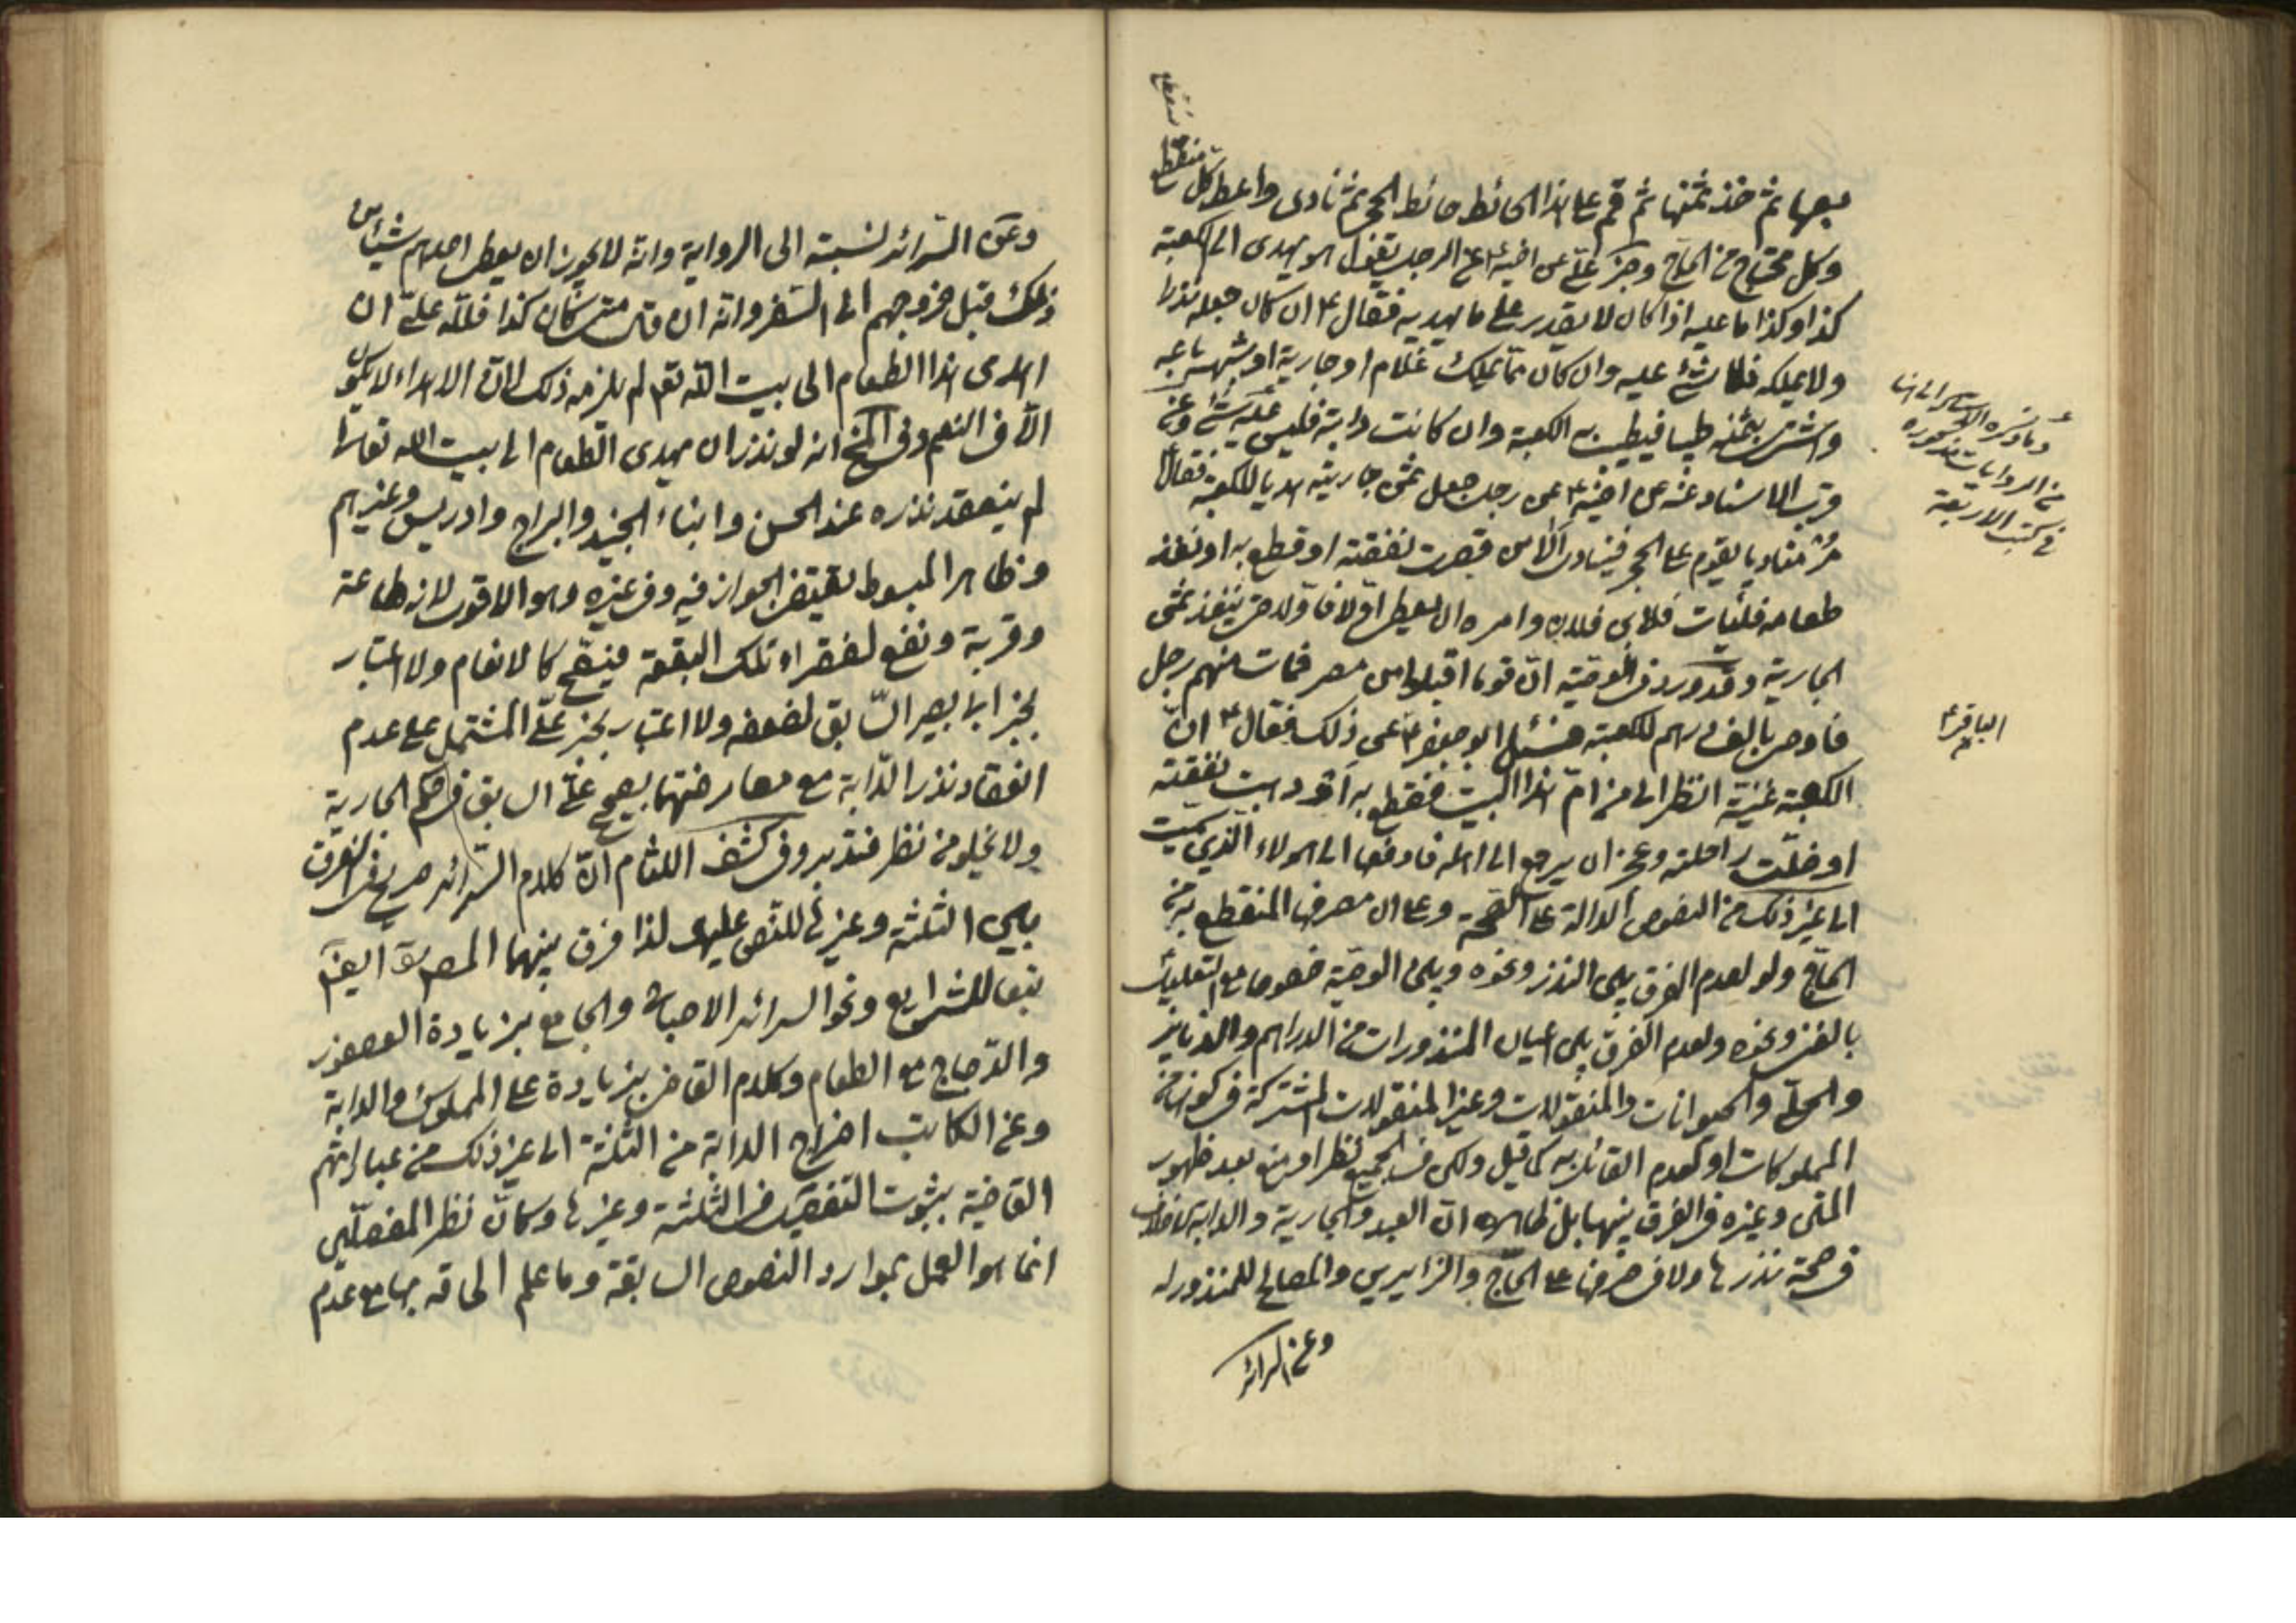 بعها ثم خذ ثمنها ثم قم على هذا الحائط حائط الحجر ثم ناد واعط كل منقطع
وكل محتاج من الحاج وخبر علي عن اخيه ع عن الرجل يقول هو يهدى الى الكعبة
كذا وكذا ما عليه اذا كان لا يقدر على ما يهديه فقال ع ان كان جعله نذرا
ولا يملكه فلا شئ عليه وان كان مما يملك غلام او جارية او شبهه باعه
واشترى بثمنه طيبا فيطيب به الكعبة وان كانت دابة فليس عليه شئ وعن
قرب الاسناد عنه عن اخيه ع عن رجل جعل ثمن جاريته هديا للكعبة فقال
مر مناديا يقوم على الحجر فينادى الا من قصرت نفقته او قطع به او نفد
طعامه فليات فلان بن فلان وامره ان يعطى اولا فاولا حتى ينفد ثمن
الجارية وقد ورد فى الوصية ان قوما اقبلوا من مصر فمات منهم رجل
فاوصى بالف درهم للكعبة فسئل ابو جعفر ع عن ذلك فقال ع ان
الكعبة غنية انظر الى من ام هذا البيت فقطع به او ذهبت نفقته
او ضلت راحلته وعجز ان يرجع الى اهله فادفعها الى هولاء الذين سميت
الى غير ذلك من النصوص الدالة على الصحة وعلى ان مصرفها المنقطع به من
الحاج ولو لعدم الفرق بين النذر ونحوه وبين الوصية خصوصا مع التعليل
بالغنى ونحوه ولعدم الفرق بين اعيان المنذورات من الدراهم والدنانير
والحلى والحيوانات والمنقولات وغير المنقولات المشتركة فى كونها من
المملوكات او لعدم القائل به كما قيل ولكن فى الجميع نظر او منع بعد ظهور
المتن وغيره فى الفرق بينها بل ظاهره ان العبد والجارية والدابة لا خلاف
فى صحة نذرها ولا فى صرفها على الحاج والزايرين والمصالح للمنذور له
وعن السرائر
الباقر ع
وعن السرائر نسبته الى الرواية وانه لا يجوز ان يعطى احدهم شيئا من
ذلك قبل خروجهم الى السفر وانه ان قال متى كان كذا فلله علي ان
اهدى هذا الطعام الى بيت الله تعم لم يلزمه ذلك لان الاهداء لا يكون
الا فى النعم وفى المخ انه لو نذر ان يهدى الطعام الى بيت الله تعالى
لم ينعقد نذره عند الحسن وابناء الجنيد والبراج وادريس وغيرهم
وظاهر المبسوط يقتضى الجواز فيه وفى غيره وهو الاقوى لانه طاعة
وقربة ونفع لفقراء تلك البقعة فيصح كالانعام ولا اعتبار
بخبر ابى بصير السابق لضعفه ولا اعتبار بخبر علي المشتمل على عدم
انعقاد نذر الدابة مع معارضتها بصحيح علي السابق فى حكم الجارية
ولا يخلو من نظر فتدبر وفى كشف اللثام ان كلام السرائر صريح فى الفرق
بين الثلثة وغيرها للنص عليها لذا فرق بينهما المصنف ايضا
تبعا للشرايع ونحو السرائر الاصباح والجامع بزيادة العصفور
والدجاج مع الطعام وكلام القاضى بزيادة على المملوك والدابة
وعن الكاتب اخراج الدابة من الثلثة الى غير ذلك من عباراتهم
القاضية بثبوت التفصيل فى الثلثة وغيرها وكان نظر المفصلين
انما هو العمل بموارد النصوص السابقة وما علم الحاقه بها مع عدم